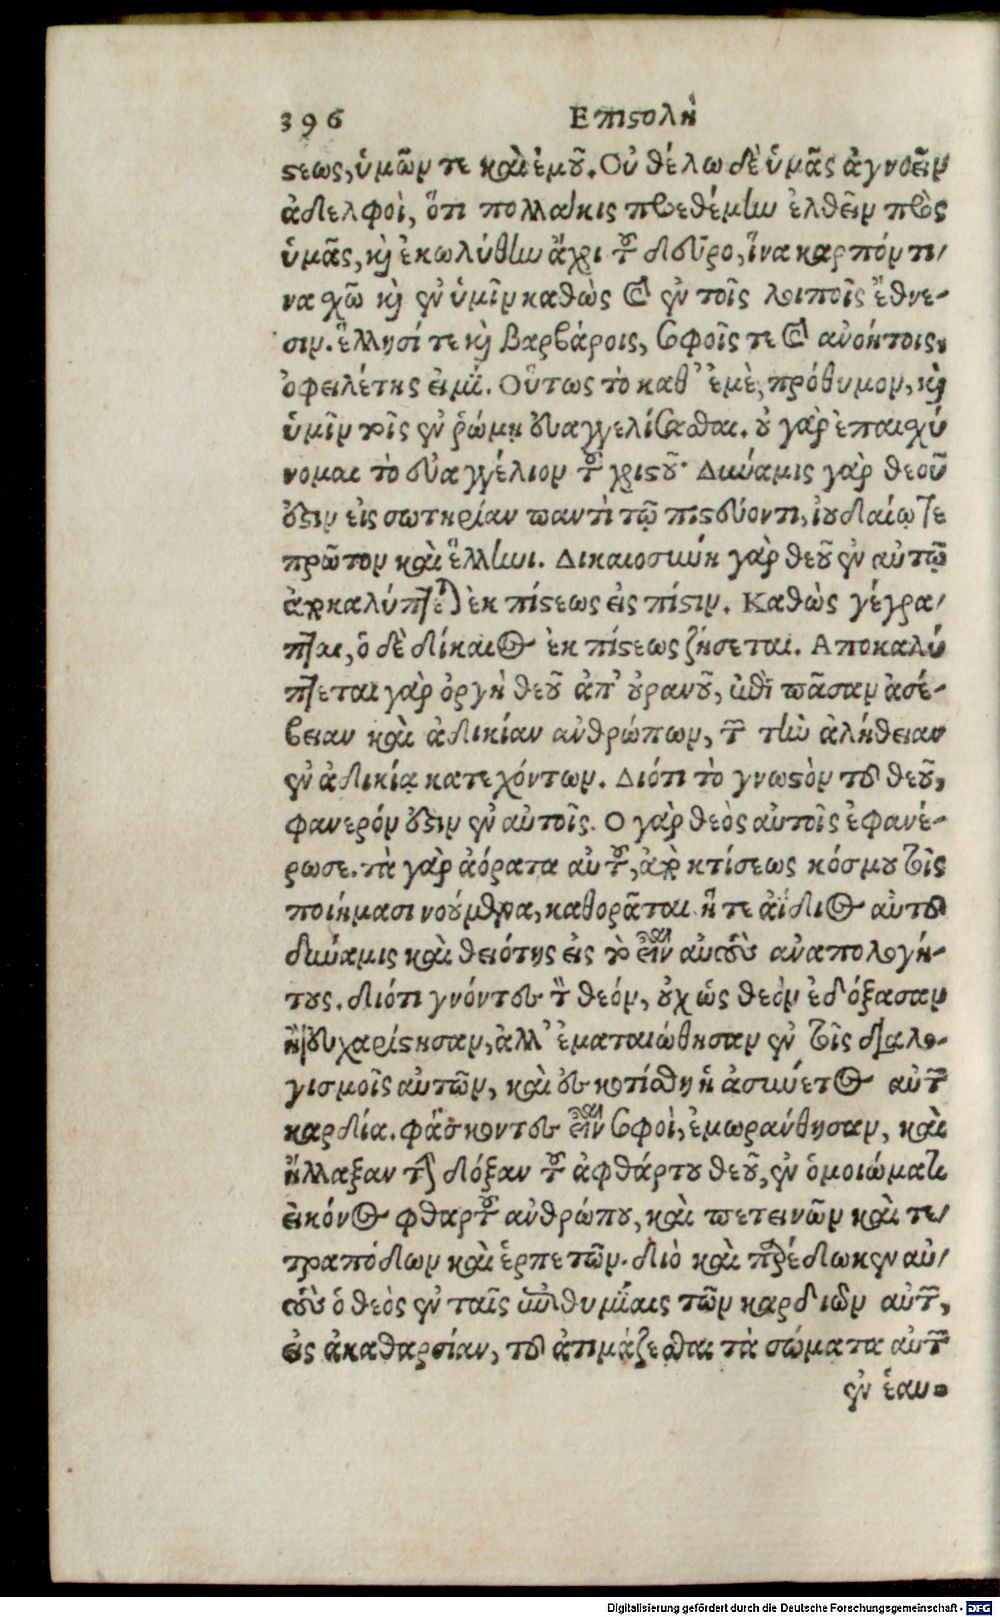 396 ΕΠΙϛολὴ
ϛεως, ὑμῶν τε καὶ ἐμοῦ. Οὐ θέλω δὲ ὑμᾶς ἀγνοεῖν
ἀδελφοὶ, ὅτι πολλάκις προεθέμην ἐλθεῖν πρὸς
ὑμᾶς, καὶ ἐκωλύθην ἄχρι τοῦ δεῦρο, ἵνα καρπόν τι/
να χῶ καὶ ἐν ὑμῖν καθὼς καὶ ἐν τοῖς λοιποῖς ἔθνε-
σιν. ἕλλησί τε καὶ βαρβάροις, σοφοῖς τε καὶ ἀνοήτοις,
ὀφειλέτης εἰμί. Οὕτως τὸ κατ' ἐμὲ, πρόθυμον, καὶ
ὑμῖν τοῖς ἐν ῥώμῃ εὐαγγελίσασθαι. οὐ γὰρ ἐπαισχύ
νομαι τὸ εὐαγγέλιον τοῦ χριϛοῦ· Δύναμις γὰρ θεοῦ
ἐϛιν εἰς σωτηρίαν παντὶ τῷ πιϛεύοντι, ἰουδαίῳ τε
πρῶτον καὶ ἕλληνι. Δικαιοσύνη γὰρ θεοῦ ἐν αὐτῷ
ἀποκαλύπτεται ἐκ πίϛεως εἰς πίϛιν. Καθὼς γέγρα/
πται, ὁ δὲ δίκαιος ἐκ πίϛεως ζήσεται. Αποκαλύ
πτεται γὰρ ὀργὴ θεοῦ ἀπ' οὐρανοῦ, ἐπὶ πᾶσαν ἀσέ-
βειαν καὶ ἀδικίαν ανθρώπων, τῶν τὴν ἀλήθειαν
ἐν ἀδικίᾳ κατεχόντων. Διότι τὸ γνωϛὸν τοῦ θεοῦ,
φανερόν ἐϛιν ἐν αὐτοῖς. Ο γὰρ θεὸς αὐτοῖς ἐφανέ-
ρωσε. τὰ γὰρ ἀόρατα αὐτοῦ, ἀπὸ κτίσεως κόσμου τοῖς
ποιήμασι νοούμενα, καθορᾶται ἥ τε ἀΐδιος αὐτοῦ
δύναμις καὶ θειότης εἰς τὸ εἶναι αὐτοὺς αναπολογή-
τους. διότι γνόντες τὸν θεόν, οὐχ ὡς θεὸν ἐδόξασαν
ἢ εὐχαρίϛησαν, ἀλλ' ἐματαιώθησαν ἐν τοῖς διαλο-
γισμοῖς αὐτῶν, καὶ ἐσκοτίσθη ἡ ἀσύνετος αὐτῶν
καρδία. φάσκοντες εἶναι σοφοὶ, ἐμωράνθησαν, καὶ
ἤλλαξαν τὴν δόξαν τοῦ ἀφθάρτου θεοῦ, ἐν ὁμοιώματι
εἰκόνος φθαρτοῦ ανθρώπου, καὶ πετεινῶν καὶ τε/
τραπόδων καὶ ἑρπετῶν. διὸ καὶ παρέδωκεν αὐ/
τοὺς ὁ θεὸς ἐν ταῖς ἐπιθυμίαις τῶν καρδιῶν αὐτῶν,
εἰς ἀκαθαρσίαν, τοῦ ἀτιμάζεσθαι τὰ σώματα αὐτῶν
ἐν ἑαυ-
Digitalisierung gefördert durch die Deutsche Forschungsgemeinschaft - DFG